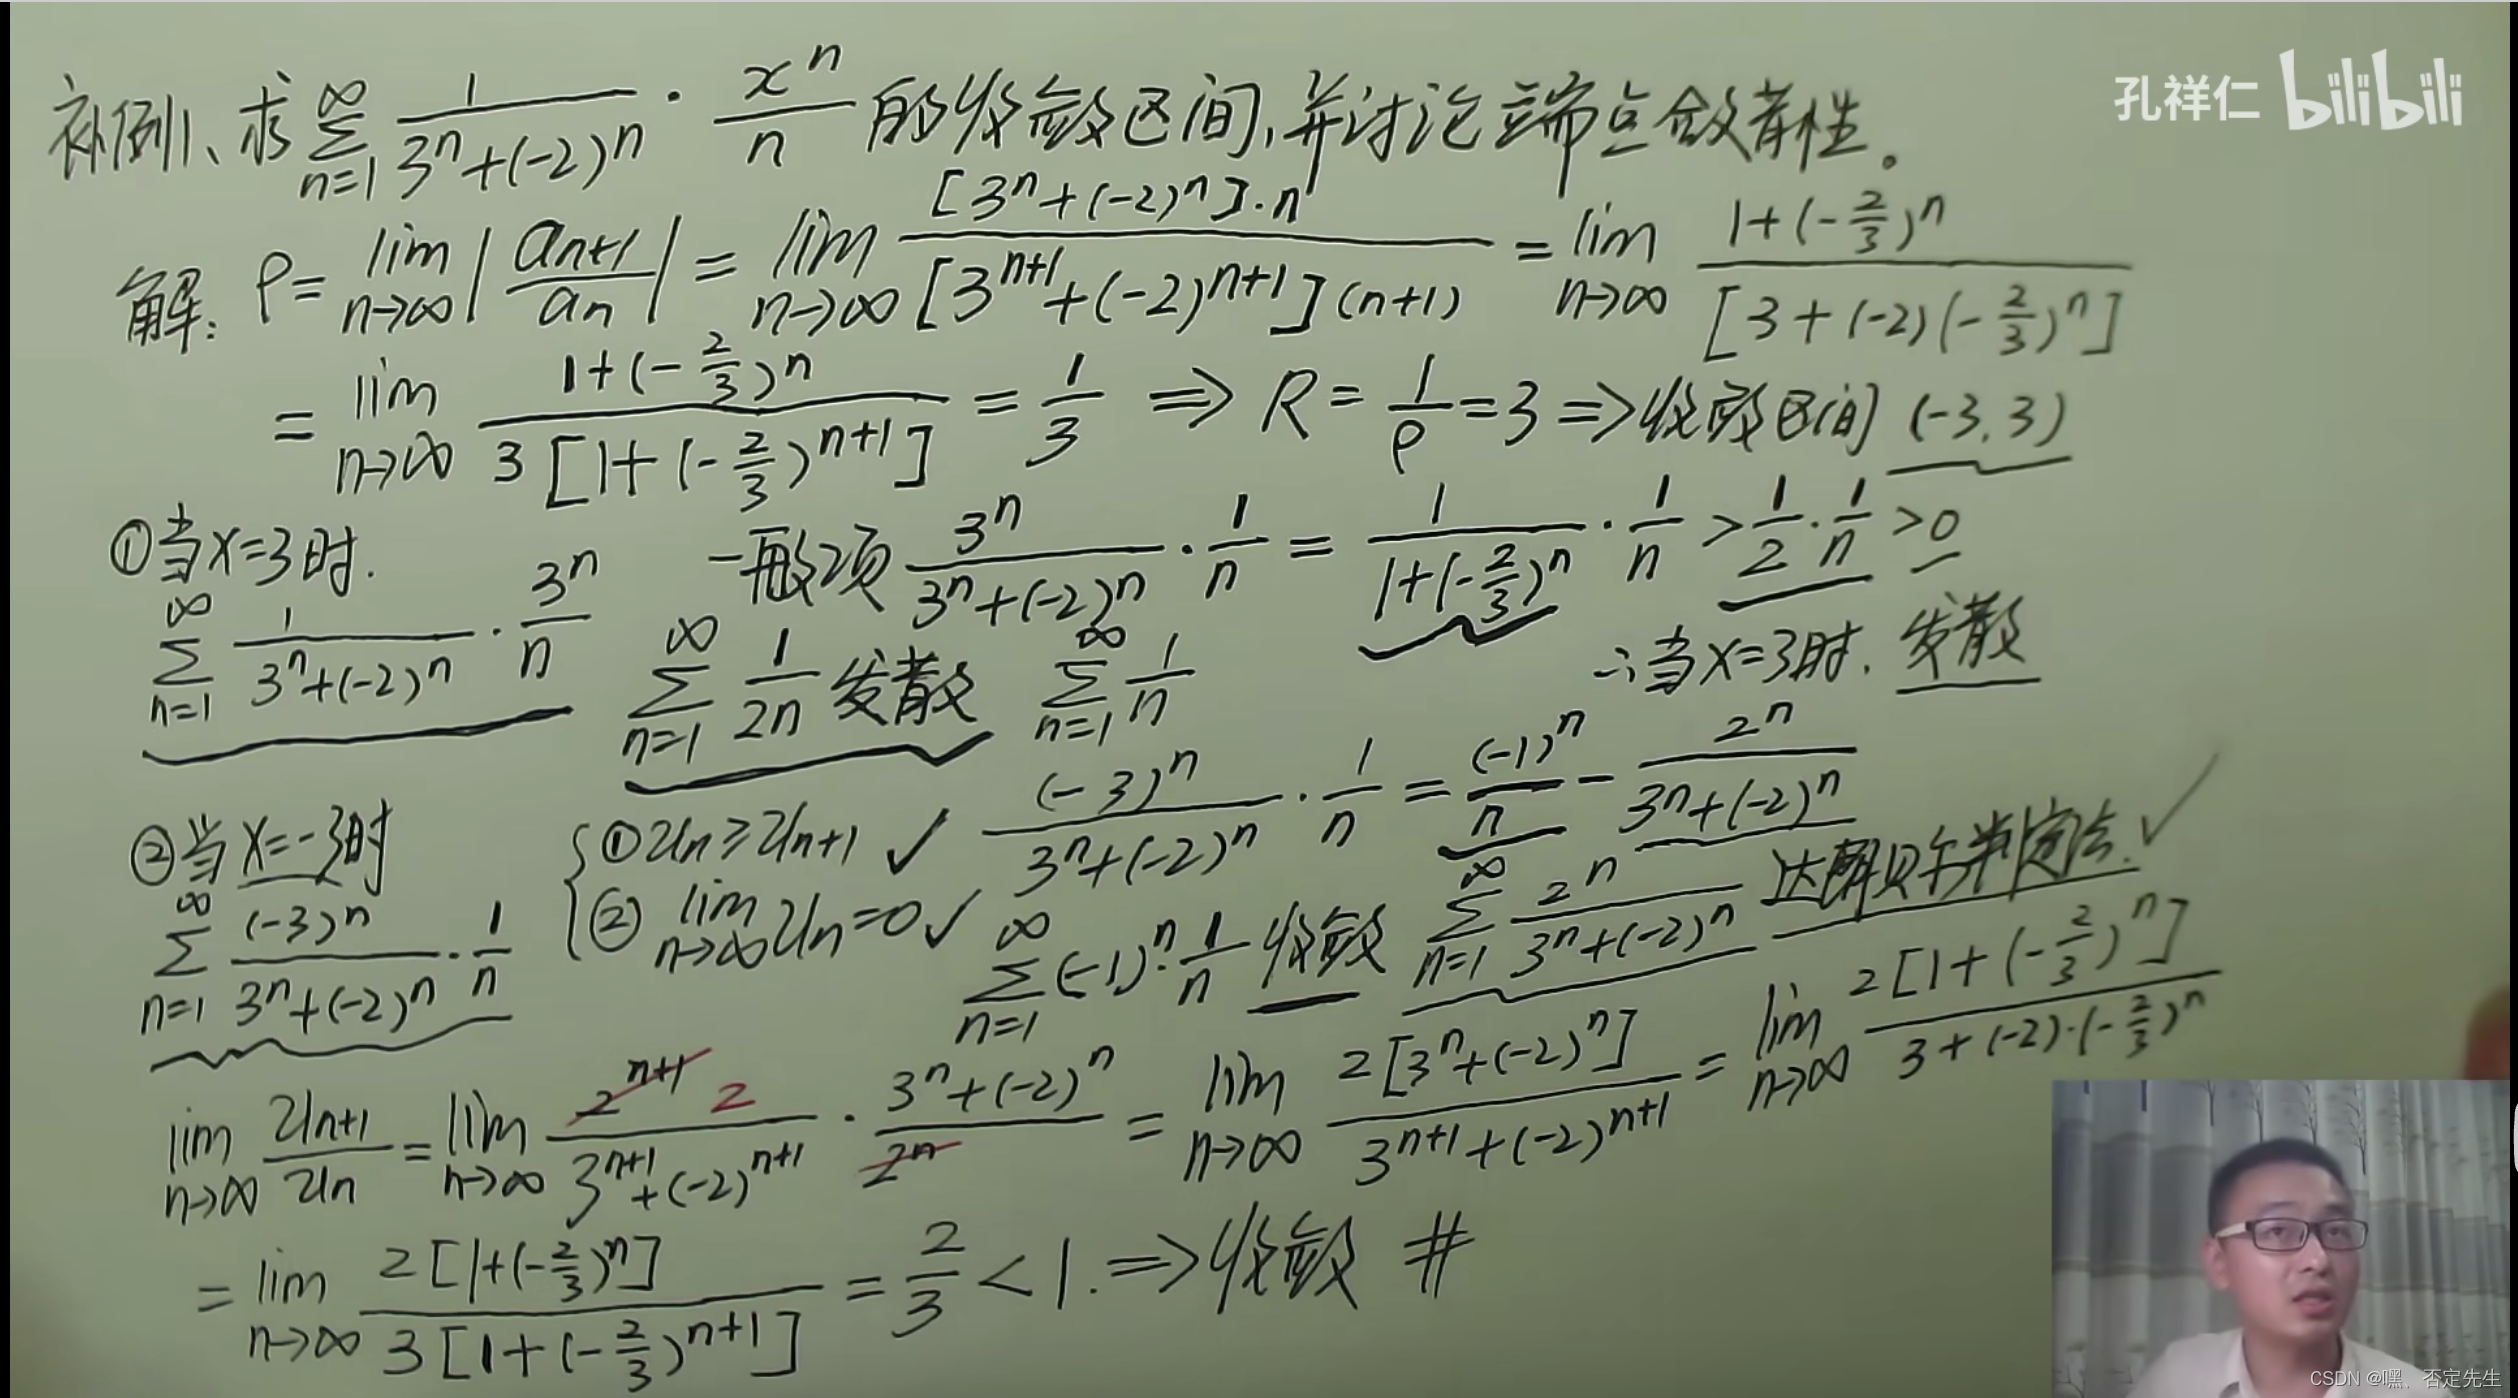 孔祥仁 bilibili
补例1、求 ∑_{n=1}^{∞} 1/(3^n+(-2)^n) · x^n/n 的收敛区间,并讨论端点敛散性。
解: ρ = lim_{n→∞} |a_{n+1}/a_n| = lim_{n→∞} [3^n+(-2)^n]·n / [3^{n+1}+(-2)^{n+1}](n+1) = lim_{n→∞} (1+(-2/3)^n) / [3+(-2)(-2/3)^n]
= lim_{n→∞} (1+(-2/3)^n) / 3[1+(-2/3)^{n+1}] = 1/3 ⇒ R = 1/ρ = 3 ⇒ 收敛区间 (-3,3)
①当x=3时. 一般项 3^n/(3^n+(-2)^n) · 1/n = 1/(1+(-2/3)^n) · 1/n > 1/2 · 1/n > 0
∑_{n=1}^{∞} 1/(3^n+(-2)^n) · 3^n/n ∑_{n=1}^{∞} 1/2n 发散 ∑_{n=1}^{∞} 1/n ∴当x=3时, 发散
②当x=-3时 { ①u_n ≥ u_{n+1} ✓ (-3)^n/(3^n+(-2)^n) · 1/n = (-1)^n/n - 2^n/(3^n+(-2)^n)
∑_{n=1}^{∞} (-3)^n/(3^n+(-2)^n) · 1/n ② lim_{n→∞} u_n = 0 ✓ ∑_{n=1}^{∞} (-1)^n · 1/n 收敛 ∑_{n=1}^{∞} 2^n/(3^n+(-2)^n) 达朗贝尔判定法. ✓
lim_{n→∞} u_{n+1}/u_n = lim_{n→∞} 2^{n+1} 2/(3^{n+1}+(-2)^{n+1}) · (3^n+(-2)^n)/2^n = lim_{n→∞} 2[3^n+(-2)^n]/(3^{n+1}+(-2)^{n+1}) = lim_{n→∞} 2[1+(-2/3)^n]/(3+(-2)·(-2/3)^n)
= lim_{n→∞} 2[1+(-2/3)^n] / 3[1+(-2/3)^{n+1}] = 2/3 < 1. ⇒ 收敛 #
CSDN @嘿、否定先生